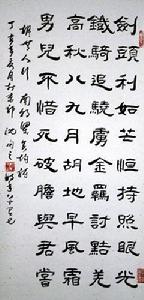 劍頭利如芒恒持照眼光
鐵騎追驍虜金羈討黠羌
高秋八九月胡地早風霜
男兒不惜死破膽與君嘗
胡無人行 南朝梁吳均詩
丁亥年夏月